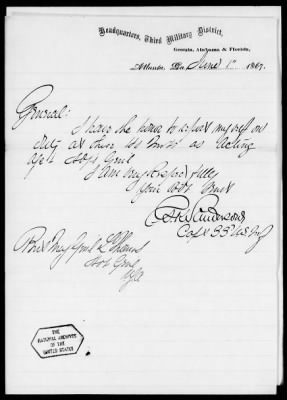 Headquarters, Third Military District,
Georgia, Alabama & Florida,
Atlanta, Ga. June 1st 1867.
General:
I have the honor to report my self on
duty at these Hd Qrs as Acting
Asst Genl
I am very Respectfully
Your Obt Servt
Capt 33 US Inf
Bvt Maj Genl L Thomas
Adjt Genl
USA
THE
NATIONAL ARCHIVES
OF THE
UNITED STATES